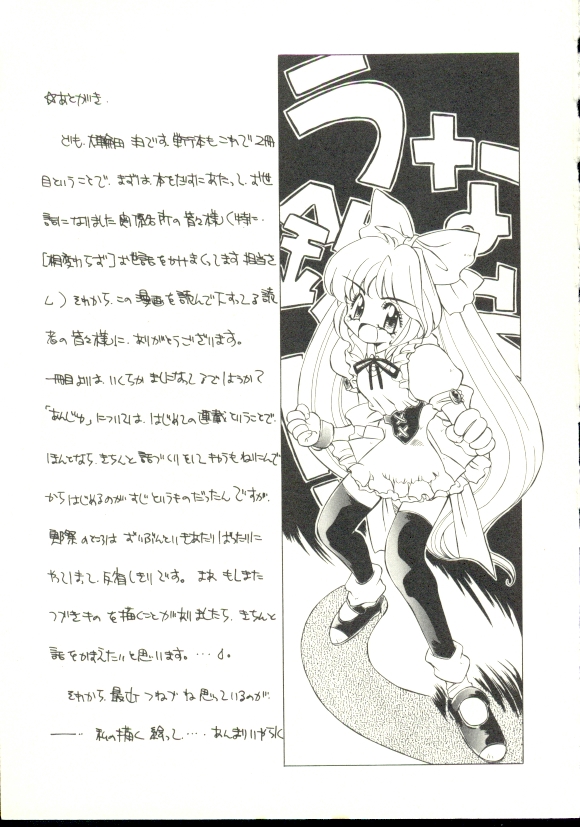 ☆あとがき.
ども、大輪田 すです。単行本もこれで2冊
目ということで、まずは、本をだすにあたって、お世
話になりました 所の皆々様(特に、
[相変わらず]お世話をかけまくってます 担当さ
ん)それから、この漫画を読んで下すってる読
者の皆々様に、ありがとうございます。
一冊目よりは、いくらか ましになってるでしょうか?
「あんじゅ」については、はじめての連載ということで、
ほんとなら、きちんと話づくりをして きっちりねりこんで
からはじめるのがすじというものだったんですが、
実際のところは ずいぶんといきあたりばったりに
やってしまって、反省しきりです。 また、もしまた
つづきものを描くことがありましたら、きちんと
話をかまえたいと思います。…
それから、最近つねづね思っているのが、
――… 私の描く絵って……あんまりいやらしく